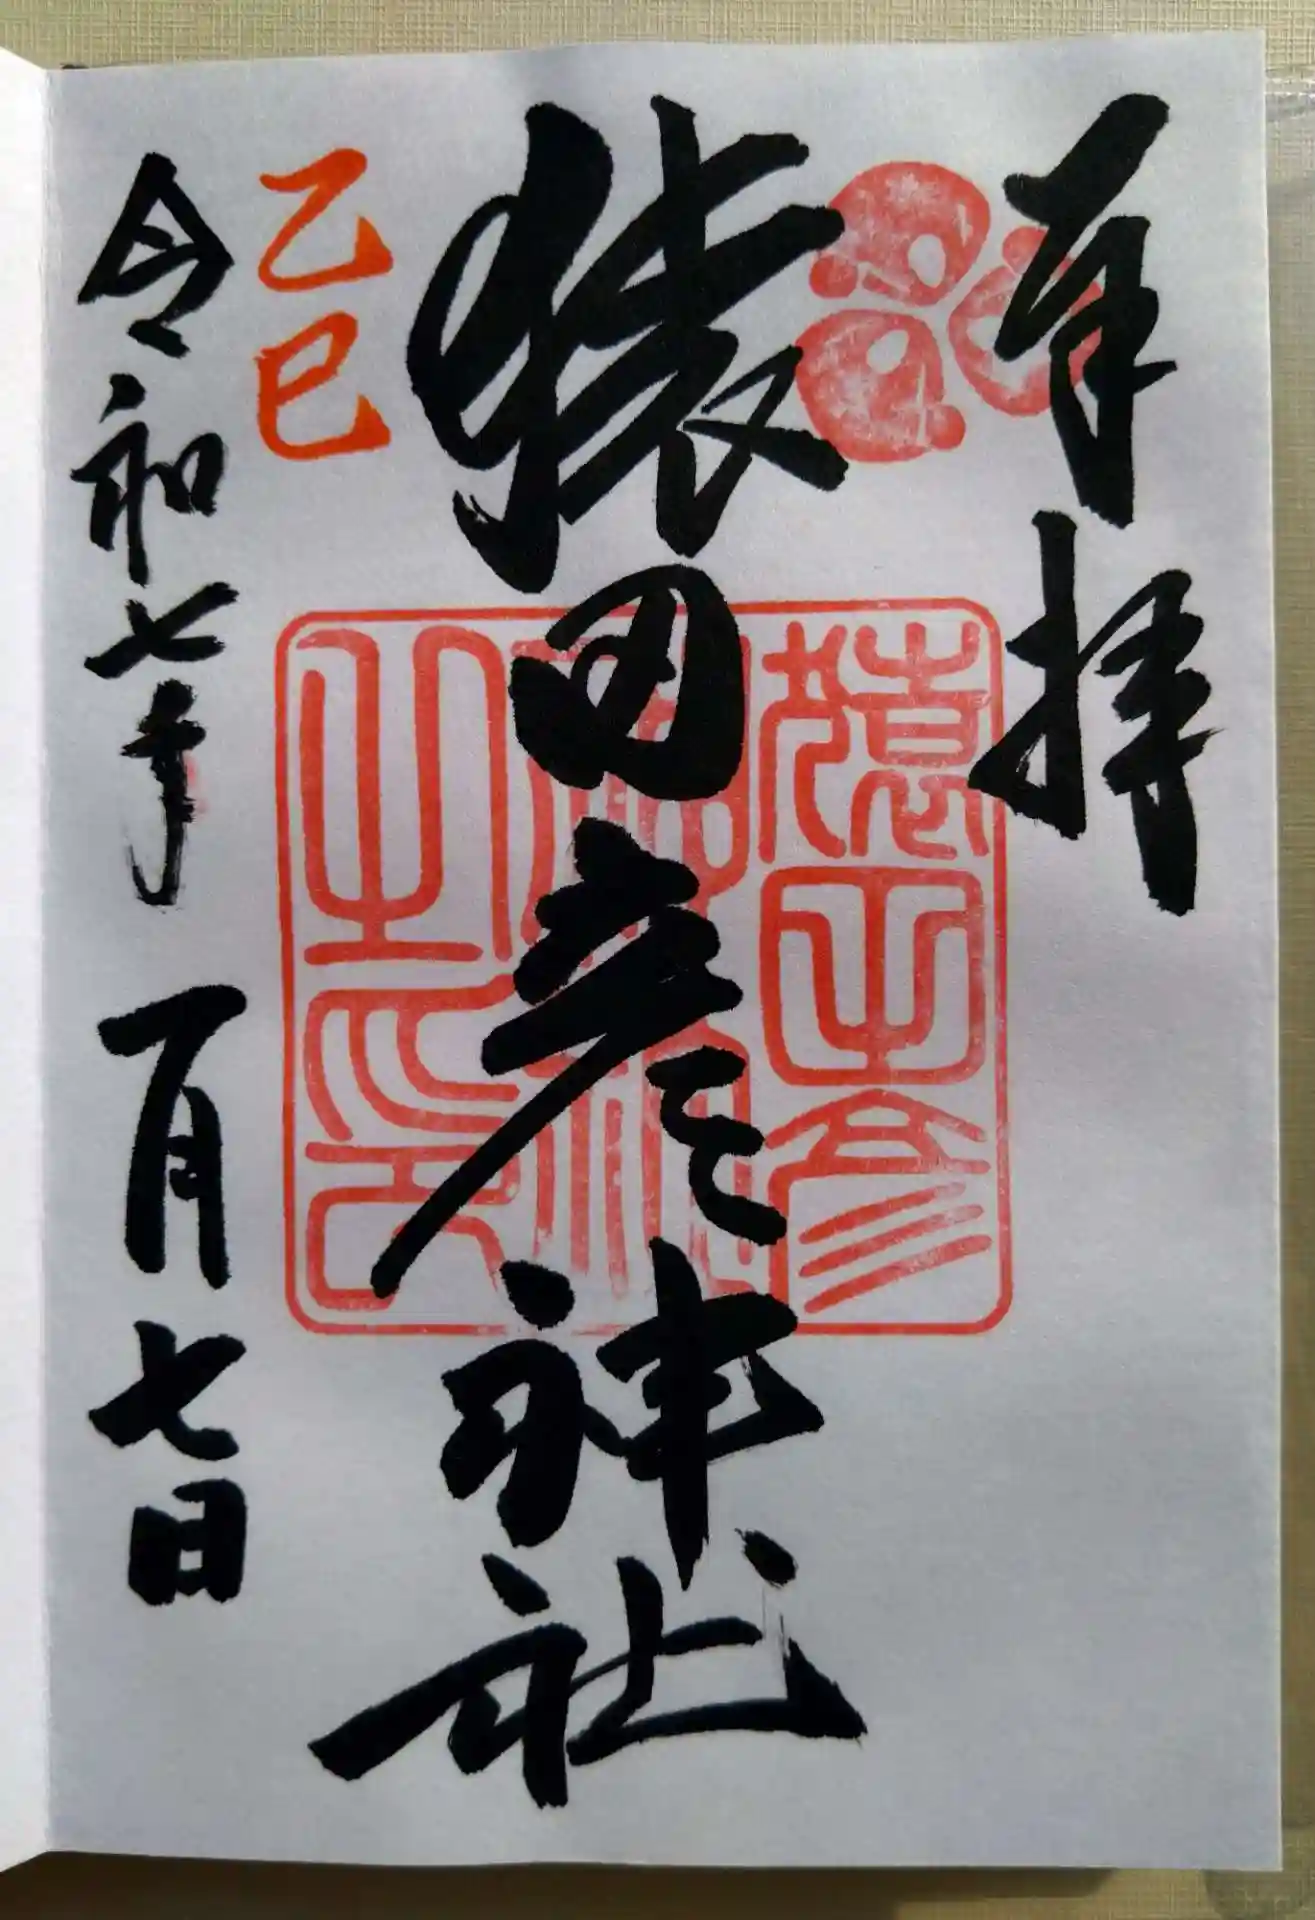 奉拝
猿田彦神社
猿田彦
神社
之印
乙巳
令和七年一月七日